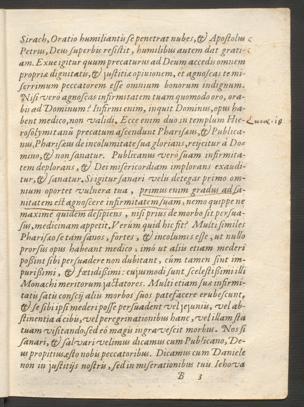 Sirach, Oratio humiliantis se penetrat nubes, & Apostolus
Petrus, Deus superbis resistit, humilibus autem dat grati-
am. Exuet igitur quum precaturus ad Deum accedis omnem
propriæ dignitatis, & justitiæ opinionem, et agnoscas te mi-
serrimum peccatorem esse omnium bonorum indignum.
Nisi vero agnoscas infirmitatem tuam quomodo oro, ora-
bis ad Dominum? Infirmi enim, inquit Dominus, opus ha-
bent medico, non validi. Ecce enim duo in templum Hie-
rosolymitanū precatum ascendunt Pharisæus, & Publica-
nus, Pharisæus de incolumitate sua glorians, rejicitur à Do-
mino, & non sanatur. Publicanus verò suam infirmita-
tem deplorans, & Dei misericordiam implorans exaudi-
tur, & sanatur. Si igitur sanari velis detegas primo om-
nium oportet vulnera tua, primus enim gradus ad sa-
nitatem est agnoscere infirmitatem suam, nemo quippe ne
maxime quidem desipiens, nisi prius de morbo sit persua-
sus, medicinam appetit. Verum quid hic fit? Multi similes
Pharisæo se tam sanos, fortes, & incolumes esse, ut nullo
prorsus opus habeant medico, imò ut aliis etiam mederi
possint sibi persuadere non dubitant, cùm tamen sint im-
purissimi, & fœtidissimi: cujusmodi sunt scelestissimi illi
Monachi meritorum jactatores. Multi etiam suæ infirmi-
tatis satis conscij aliis morbos suos patefacere erubescunt,
& se sibi ipsi mederi posse persuadent vel jejuniis, vel ab-
stinentia à cibis, vel peregrinationibus hanc, vel illam sta
tuam visitando, sed eò magis ingravescit morbus. Nos si
sanari, & salvari velimus dicamus cum Publicano, De-
us propitius esto nobis peccatoribus. Dicamus cum Daniele
non in justitijs nostris, sed in miserationibus tuis Jehova
B 3
Lucæ. 18